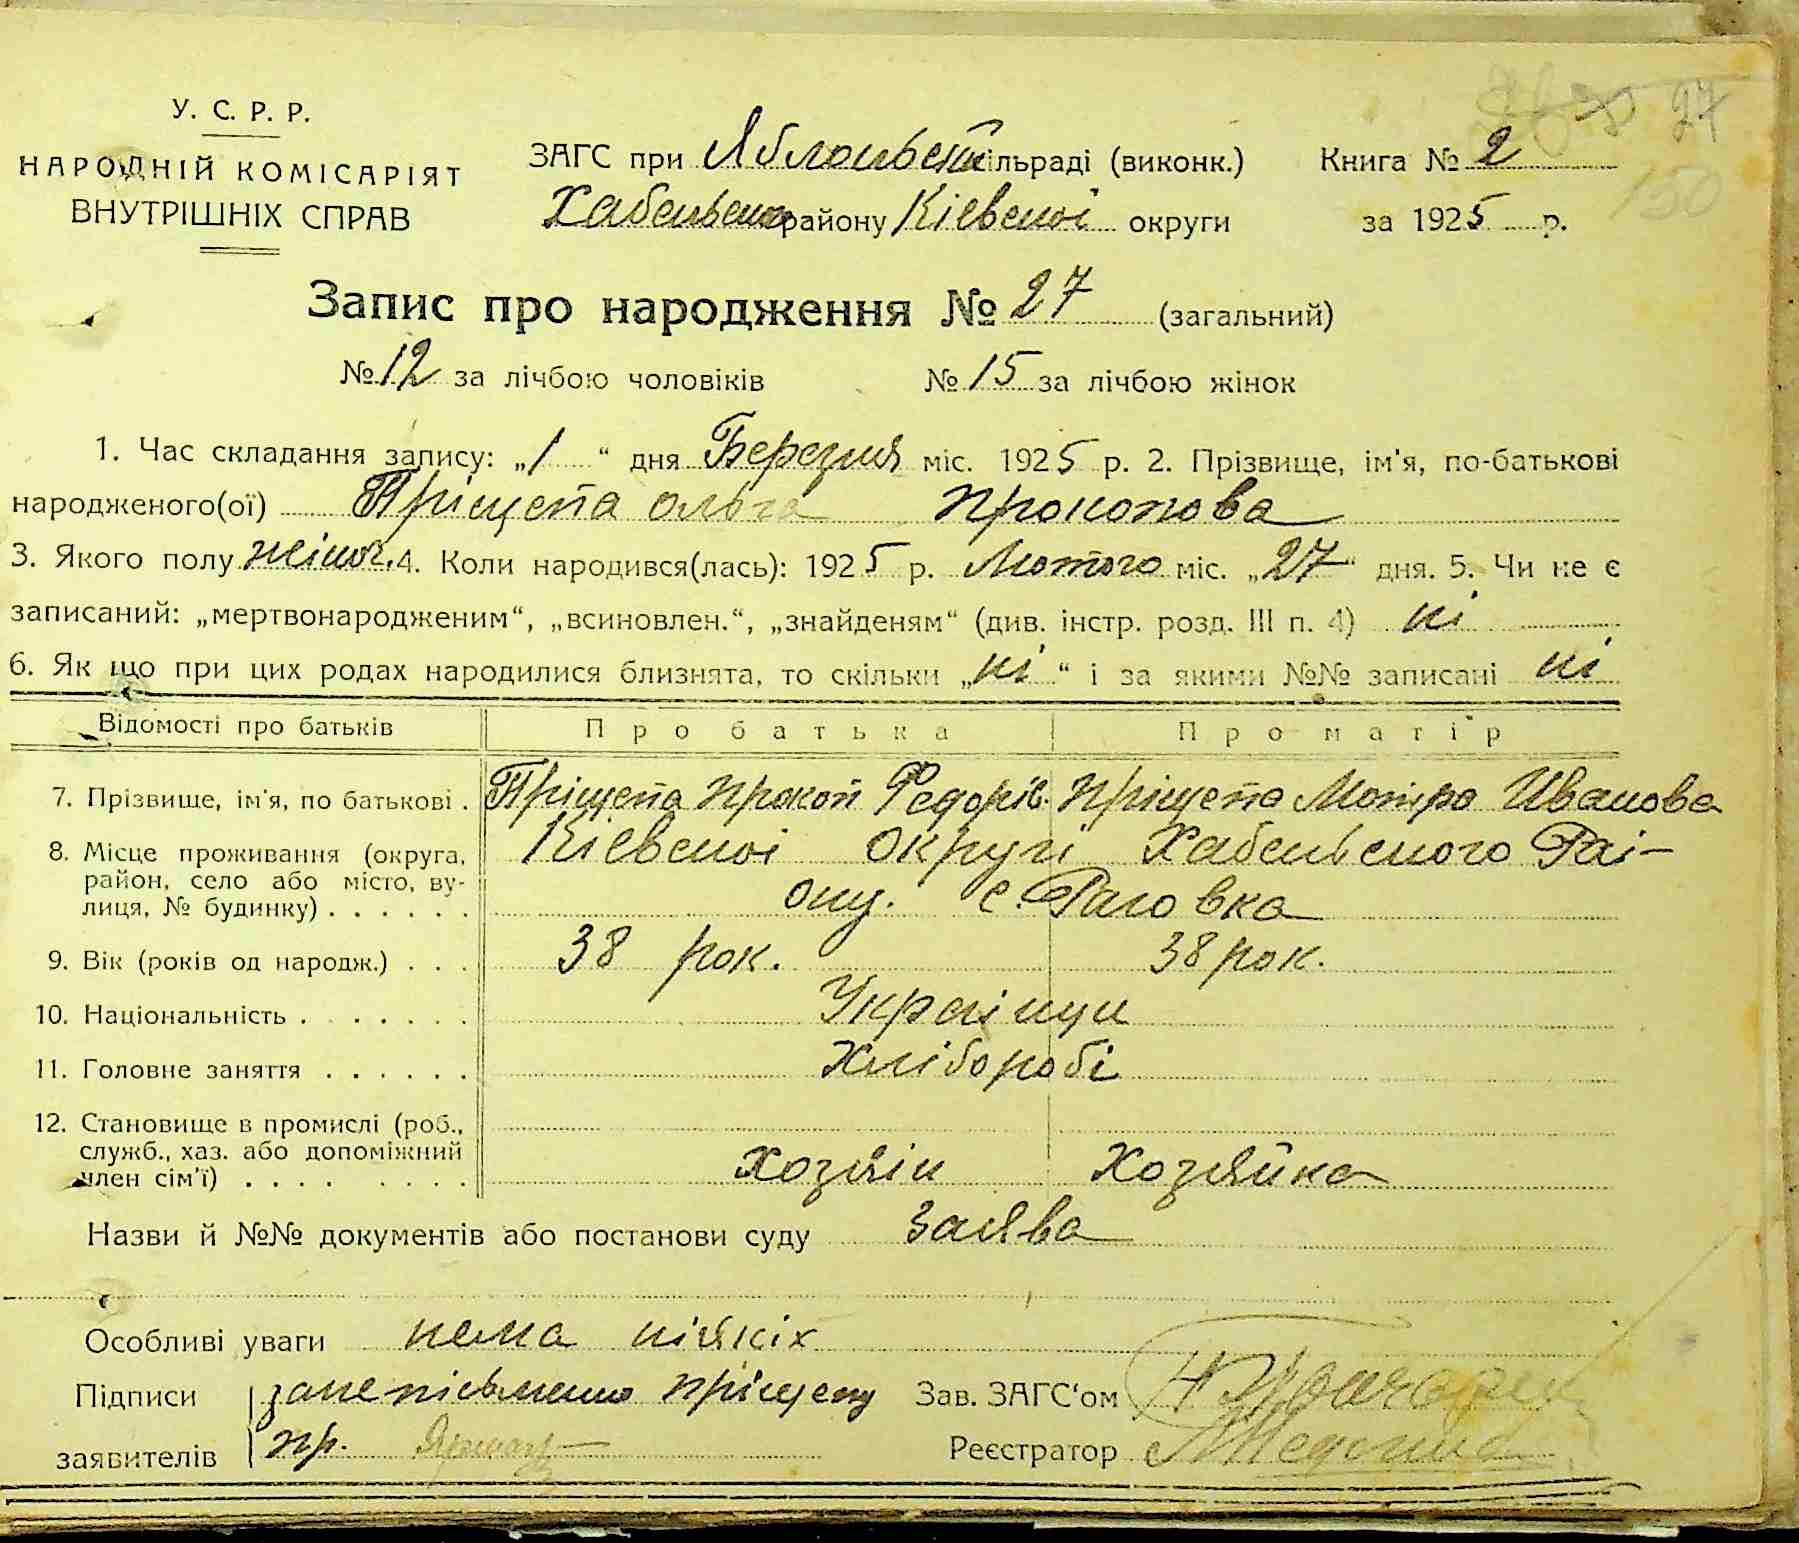 27
150
У. С. Р. Р.
НАРОДНІЙ КОМІСАРІЯТ
ВНУТРІШНІХ СПРАВ
ЗАГС при Яблоньскій сільраді (виконк.) Книга № 2
Хабеньского району Кіевськоі округи за 1925 р.
Запис про народження № 27 (загальний)
№ 12 за лічбою чоловіків № 15 за лічбою жінок
1. Час складання запису: „1“ дня Березня міс. 1925 р. 2. Прізвище, ім'я, по-батькові
народженого(ої) Пріщепа ольга прокопова
3. Якого полу жіноч. 4. Коли народився(лась): 1925 р. Лютого міс. „27“ дня. 5. Чи не є
записаний: „мертвонародженим“, „всиновлен.“, „знайденям“ (див. інстр. розд. III п. 4) ні
6. Як що при цих родах народилися близнята, то скільки „ні“ і за якими №№ записані ні
Відомості про батьків Про батька Про матір
7. Прізвище, ім'я, по батькові . Пріщепа прокоп Федорів. пріщепа Мотра Иванова
8. Місце проживання (округа, район, село або місто, вулиця, № будинку) . . . . . . Кіевскоі округі Хабеньского Раі-
ону. с. Раговка
9. Вік (років од народж.) . . . 38 рок. 38 рок.
10. Національність . . . . . . . Украінци
11. Головне заняття . . . . . . Хліборобі
12. Становище в промислі (роб., служб., хаз. або допоміжний член сім'ї) . . . . . . . . Хозяін Хозяйка
Назви й №№ документів або постанови суду заява
Особливі уваги нема ніякіх
Підписи занеписьменно пріщепу Зав. ЗАГС‘ом
заявителів пр. Реєстратор